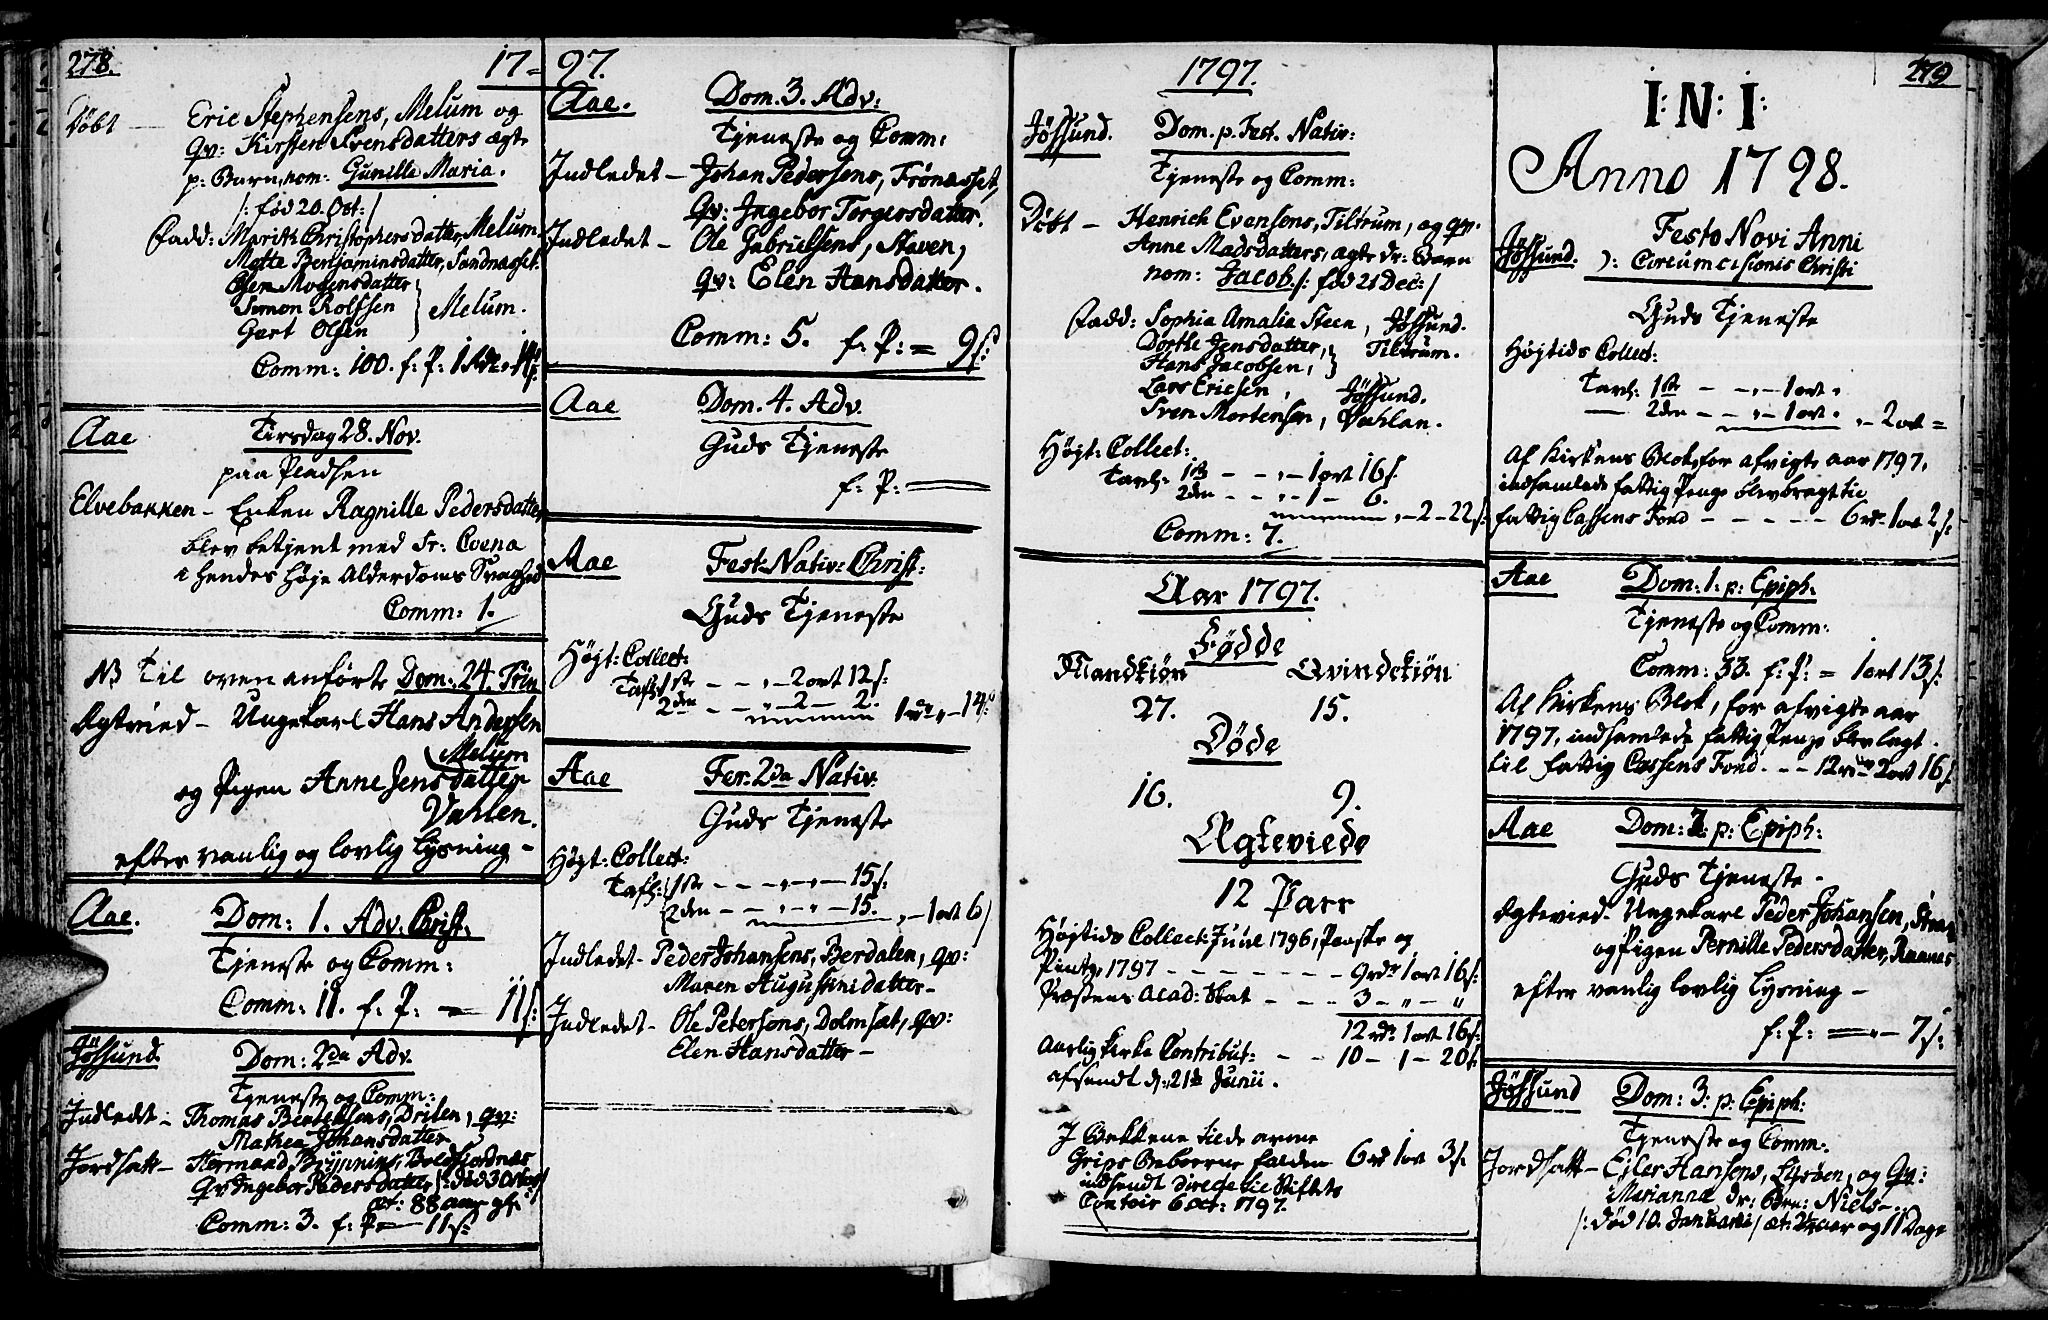 278.
17-97.
Döbt — Eric Stephensens, Melum og
Qv: Kirsten Svensdatters ægte
p: Barn, nom: Gunille Maria.
/: fød 20. Oct: /
Fadd: Marith Christophersdatter, Melum
Mette Benjaminsdatter, Sandnesset.
Elen Mogensdatter
Simon Rolfsen } Melum.
Gært Olsen
Comm: 100. f: P: 1
Aae Tirsdag 28. Nov.
paa Pladsen
Elvebakken — Enken Ragnille Pedersdatter
blev betjent med Sr: Coena
i hendes høje Alderdoms Svaghed
Comm: 1.
NB Til ovenanførte Dom: 24. Trin
Ægtevied — Ungekarl Hans Andersen
Melum
og Pigen Anne Jensdatter
Vahlen.
efter vanlig og lovlig Lysning —
Aae. Dom: 1. Adv: Christ:
Tjeneste og Comm:
Comm: 11. f: P: = 11 s:
Jössund. Dom: 2da Adv.
Tjeneste og Comm:
Indledet — Thomas Bertelsens, Driten, qv:
Mathea Johansdatter
Jordsatt — Hermaad
Qv Ingebor Pedersdatter /: død 30
æt: 88 aar gl:
Comm: 3. f: P = 11 s:
Aae. Dom. 3. Adv:
Tjeneste og Comm:
Indledet — Johan Pedersens, Frönesset,
Qv: Ingebor Torgersdatter.
Indledet — Ole Gabrielsens, Staven,
qv: Elen Hansdatter.
Comm: 5. f: P: = 9 s:
Aae Dom. 4. Adv.
Guds Tjeneste
f: P: =
Aae Fest: Nativ: Christ:
Guds Tjeneste
Højt: Collect:
Tafl: 1ste — — „ — 2 ort 12 s:
2den — — „ — 2 — 2. 1 rdr „ — 14 s
Aae Fer. 2da Nativ.
Guds Tjeneste
Højt: Collect:
Tafl: 1ste — — — „ — „ — 15 s:
2den — — „ — „ — 15. „ — 1 ort 6 /
Indledet — Peder Johansens, Berdalen, qv:
Maren Augustinidatter —
Indledet — Ole Petersens, Dolmsæt, qv:
Elen Hansdatter —
1797.
Jössund. Dom. p. Fest. Nativ:
Tjeneste og Comm:
Döbt — Henrich Evensens, Tiltrum, og qv.
Anne Madsdatters, ægte dr: Barn
nom: Jacob. /: fød 21 Dec: /
Fadd: Sophia Amalia Steen, Jössund.
Dorthe Jensdatter,
Hans Jacobsen, } Tiltrum.
Lars Ericsen, Jössund.
Sven Mortensen, Vahlen.
Højt: Collect:
Tavl: 1ste — — „ — 1 ort 16 s.
2den — — „ — 1 — 6. „ — 2 — 22 s:
Comm: 7.
Aar 1797.
Födde
Mandkiön Qvindekiön
27. 15.
Döde
16. 9.
Ægteviede
12 Parr
Højtids Collect: Juul 1796, Paaske og
Pintze 1797 — — — — — — — 9 rdr 1 ort 16 s:
Præstens Acad: Skat — — — 3 — „ — „
12 rdr 1 ort 16 s:
Aarlig Kirke Contribut: — — 10 — 1 — 20 s
afsendt d: 21de Junii.
I Bekkene til de arme
Grips Beboerne falden 6 rd 1 ort 3 s.
indsendt directe til Stiftets
Contoir 6 Oct: 1797.
279
I: N: I:
Anno 1798.
Jössund. Festo Novi Anni
): Circumcisionis Christi
Guds Tjeneste
Højtids Collect:
Tavl: 1ste — — „ — 1 ort „
— 2den — — „ — 1 ort „ „ — 2 ort =
Af Kirkens Blok, for afvigte aar 1797,
indsamlede fattig Penge blev bragt til
fattig Cassens Fond — — — — — 6 rdr 1 ort 2 s:
Aae Dom: 1. p: Epiph:
Tjeneste og Comm:
Comm: 33. f: P: = 1 ort 13 s:
Af Kirkens Blok, for afvigte aar
1797, indsamlede fattig Penge
til fattig Cassens Fond — — 12 rdr 2 ort 16 s.
Aae Dom: 2: p: Epiph:
Guds Tjeneste —
Ægtevied — Ungekarl Peder Johansen,
og Pigen Pernille Pedersdatter,
efter vanlig lovlig Lysning —
f: P: = „ — 7 s:
Jössund Dom: 3: p: Epiph:
Tjeneste og Comm:
Jordsatt — Ejler Hansens, Lysöen, og Qv:
Marianna dr: Brn: Niels —
/: død 10. Januarii / æt: 2 aar og 11 Dage